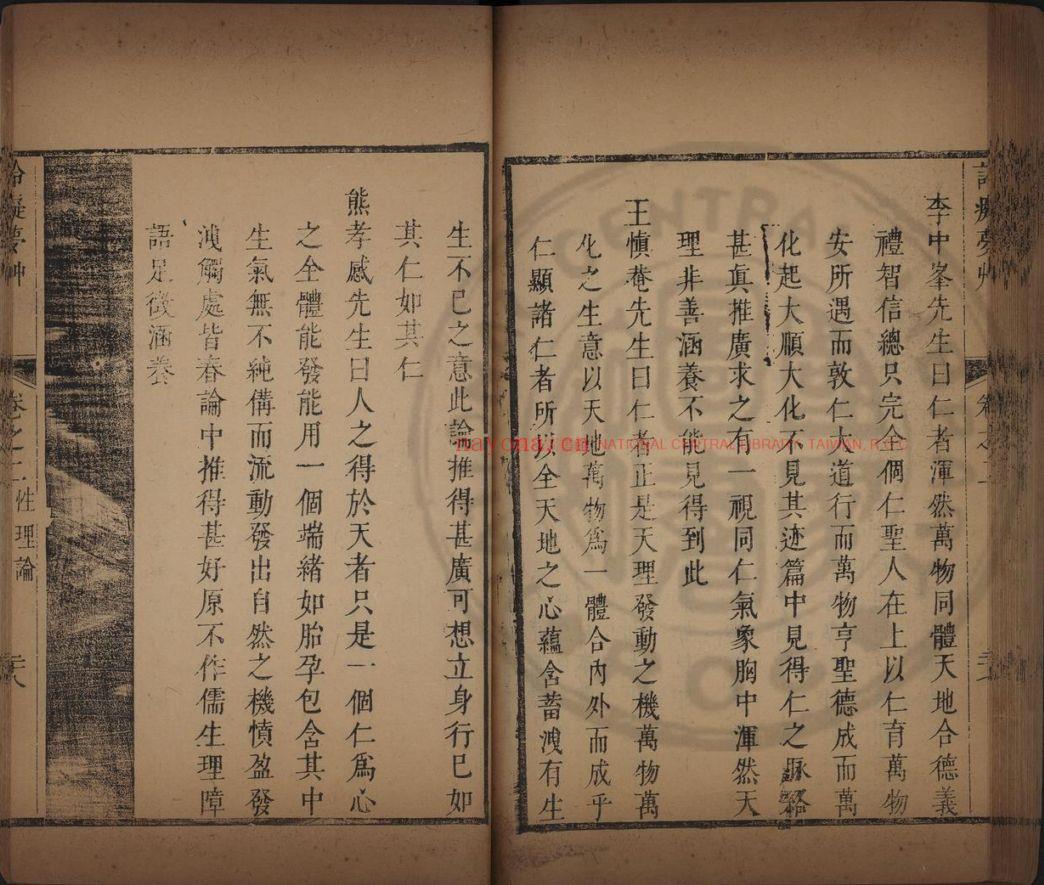 李中峯先生曰仁者渾然萬物同體天地合德義
禮智信總只完全個仁聖人在上以仁育萬物
安所遇而敦仁大道行而萬物亨聖德成而萬
化起大順大化不見其迹篇中見得仁之脉絡
甚眞推廣求之有一視同仁氣象胸中渾然天
理非善涵養不能見得到此
王愼菴先生曰仁者正是天理發動之機萬物萬
化之生意以天地萬物爲一體合內外而成乎
仁顯諸仁者所以全天地之心蘊含蓄洩有生
生不已之意此論推得甚廣可想立身行已如
其仁如其仁
熊孝感先生曰人之得於天者只是一個仁爲心
之全體能發能用一個端緒如胎孕包含其中
生氣無不純備而流動發出自然之機憤盈發
洩觸處皆春論中推得甚好原不作儒生理障
語足徵涵養
卷之二 性理論
nayona.cn NATIONAL CENTRAL LIBRARY, TAIWAN, R.O.C